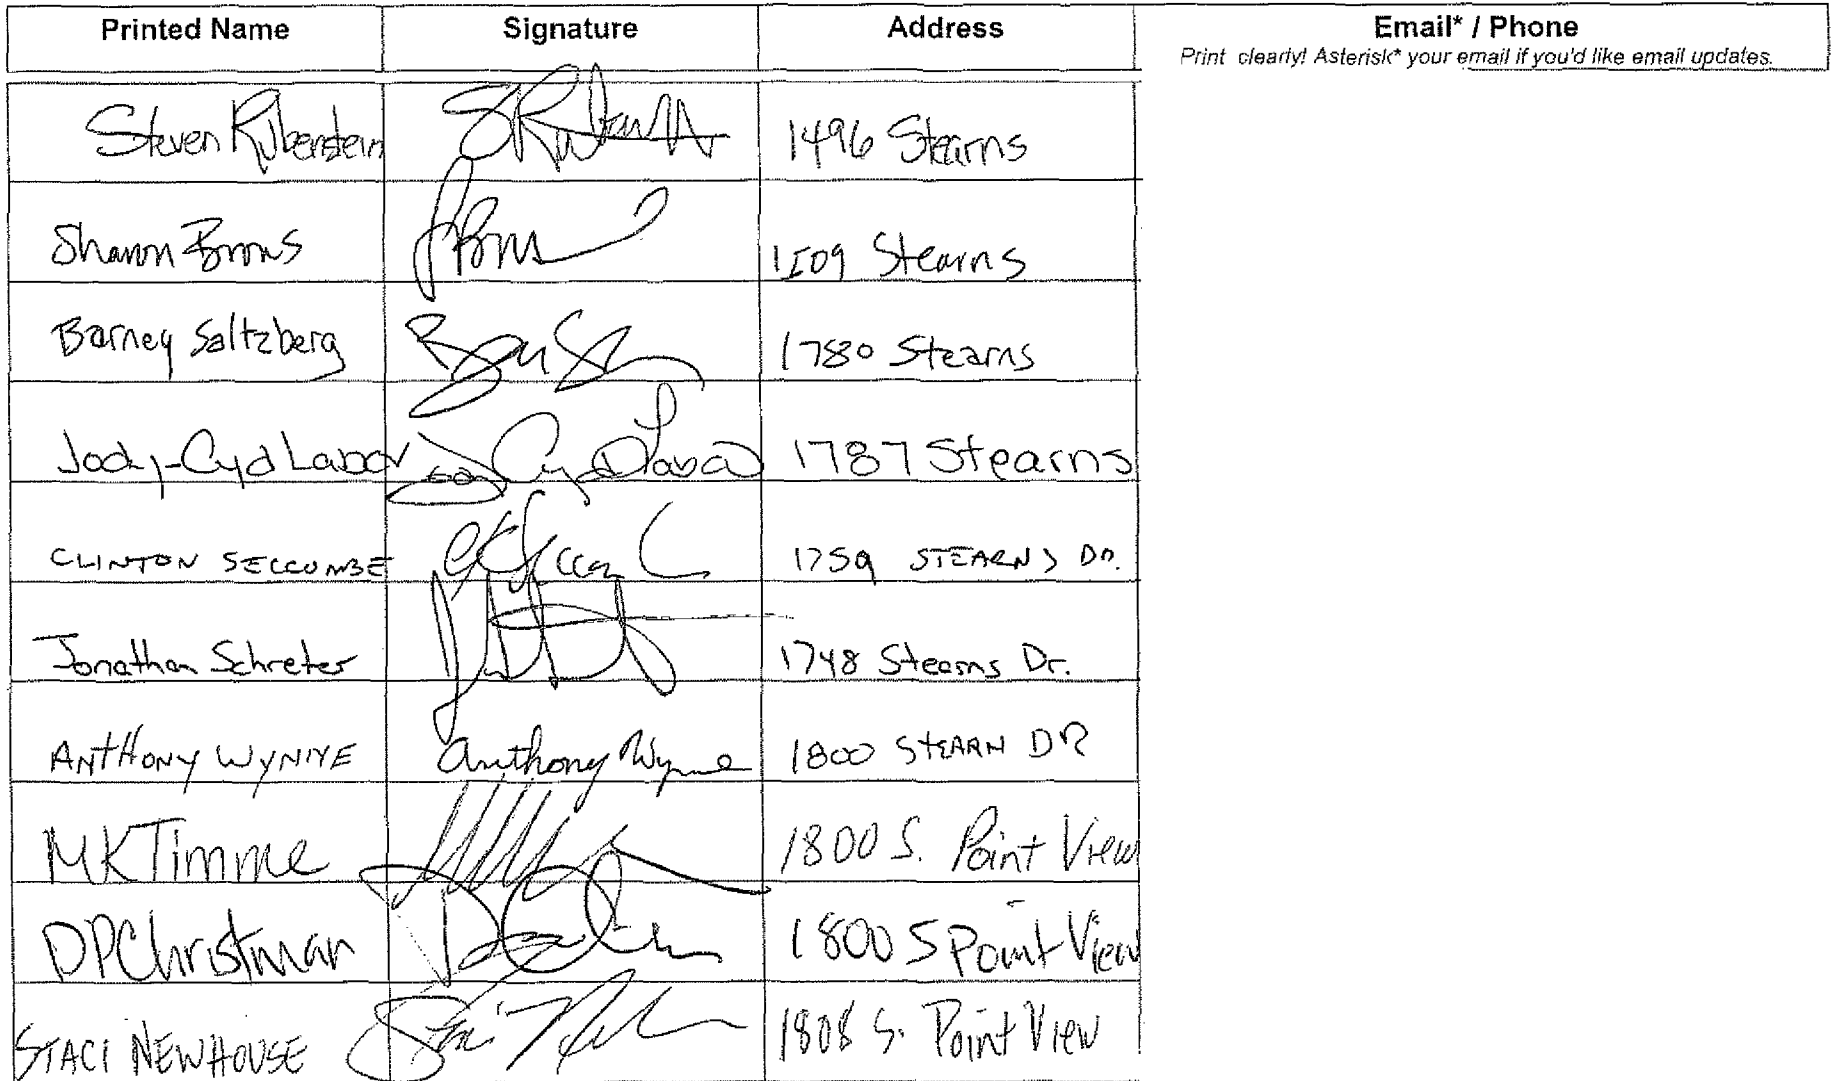 Printed Name Signature Address Email* / Phone
Print clearly! Asterisk* your email if you'd like email updates.
Steven Rubenstein 1496 Stearns
Sharon Brons 1509 Stearns
Barney Saltzberg 1780 Stearns
Jody-Cyd Labov 1787 Stearns
CLINTON SECCOMBE 1759 STEARNS Dr.
Jonathan Schreter 1748 Stearns Dr.
ANTHONY WYNNE Anthony Wynne 1800 STEARN DR
MKTimme 1800 S. Point View
DPChristman 1800 S Point View
STACI NEWHOUSE 1808 S. Point View